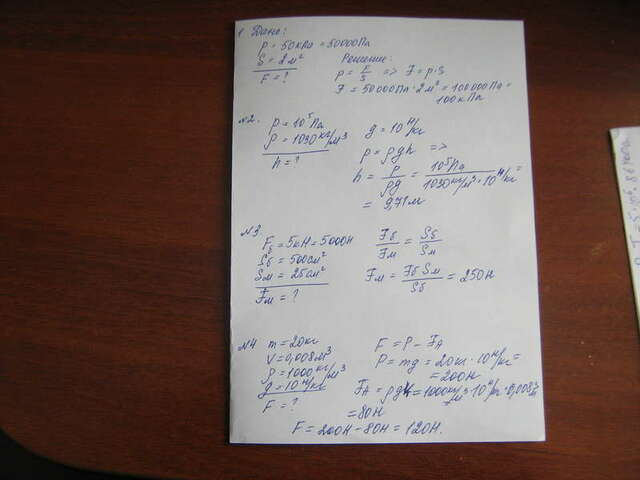 1 Дано:
P = 50кПа = 50000Па
S = 2м²
F = ?
Решение:
P = F/S => F = p·S
F = 50000Па · 2м² = 100000Па =
100кПа
№2.
P = 10⁵Па
ρ = 1030кг/м³
h = ?
g = 10Н/кг
P = ρgh =>
h = P/ρg = 10⁵Па/1030кг/м³·10Н/кг =
= 9,71м
№3
Fб = 5кН = 5000Н
Sб = 500см²
Sм = 25см²
Fм = ?
Fб/Fм = Sб/Sм
Fм = Fб Sм/Sб = 250Н
№4 m = 20кг
V = 0,008м³
ρ = 1000кг/м³
g = 10Н/кг
F = ?
F = P - FA
P = mg = 20кг · 10Н/кг =
= 200Н
FA = ρgV = 1000кг/м³·10Н/кг·0,008м³
= 80Н
F = 200Н - 80Н = 120Н.